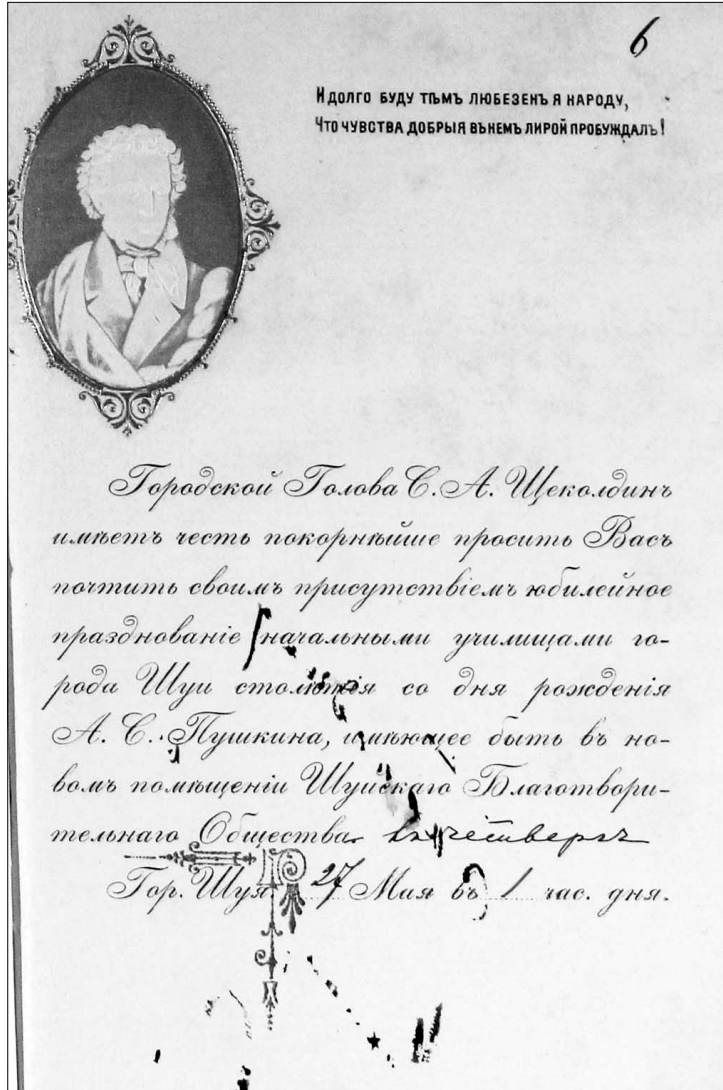 6
И ДОЛГО БУДУ ТѢМЪ ЛЮБЕЗЕНЪ Я НАРОДУ,
ЧТО ЧУВСТВА ДОБРЫЯ ВЪ НЕМЪ ЛИРОЙ ПРОБУЖДАЛЪ!
Городской Голова С. А. Щеколдинъ
имѣетъ честь покорнѣйше просить Васъ
почтить своимъ присутствіемъ юбилейное
празднованіе начальными училищами го-
рода Шуи столѣтія со дня рожденія
А. С. Пушкина, имѣющее быть въ но-
вомъ помѣщеніи Шуйскаго Благотвори-
тельнаго Общества въ четвергъ
Гор. Шуя. 27 Мая въ 1 час. дня.